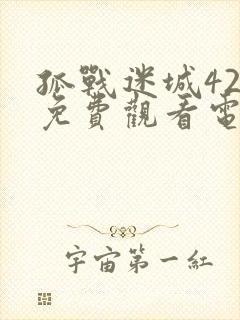 孤戰迷城42
免費觀看電
宇宙第一紅